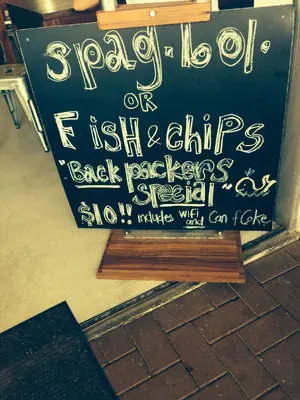 spag.bol.
OR
Fish & chips
"Backpackers
special"
$10!! includes wifi and can of coke